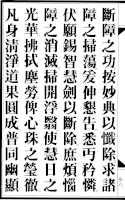 斷障之功按妙典以懺除求諸
障之掃蕩爰伸懇告悉丐矜憐
伏願錫智慧劍以斷除庶煩惱
障之消滅掃開浮翳使慧日之
光華拂拭塵勞俾心珠之瑩徹
凡身清淨道果圓成普同幽顯